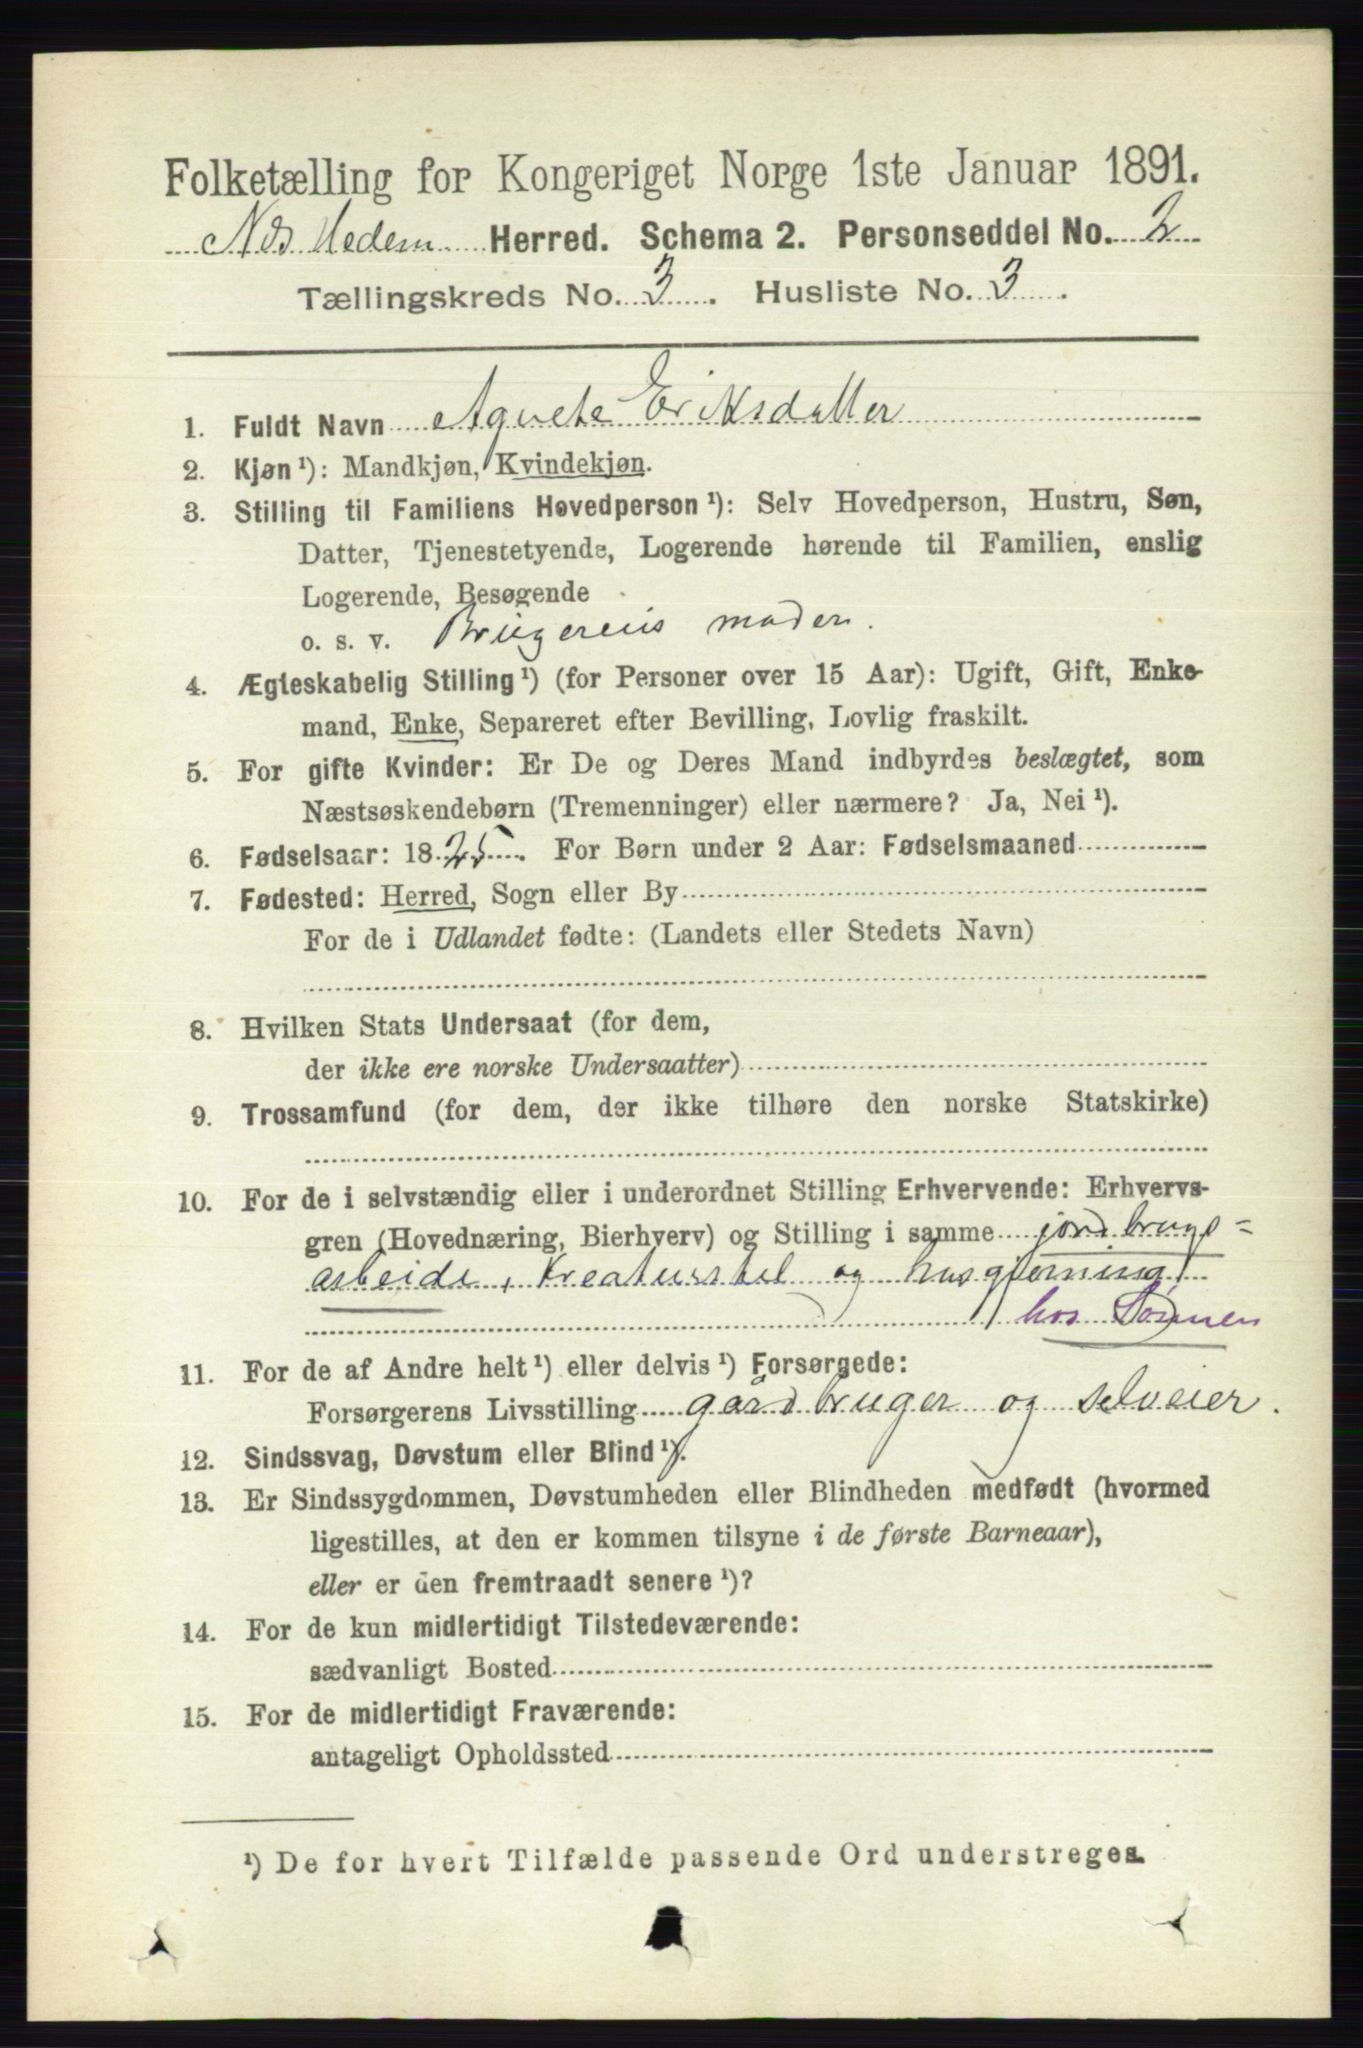 Folketælling for Kongeriget Norge 1ste Januar 1891.
Nes Hedem Herred. Schema 2. Personseddel No. 2
Tællingskreds No. 3. Husliste No. 3.
1. Fuldt Navn Agnete Eriksdatter
2. Kjøn¹): Mandkjøn, Kvindekjøn.
3. Stilling til Familiens Hovedperson¹): Selv Hovedperson, Hustru, Søn,
Datter, Tjenestetyende, Logerende hørende til Familien, enslig
Logerende, Besøgende
o. s. v. Brugerens moder.
4. Ægteskabelig Stilling¹) (for Personer over 15 Aar): Ugift, Gift, Enke-
mand, Enke, Separeret efter Bevilling, Lovlig fraskilt.
5. For gifte Kvinder: Er De og Deres Mand indbyrdes beslægtet, som
Næstsøskendebørn (Tremenninger) eller nærmere? Ja, Nei¹).
6. Fødselsaar: 1825. For Børn under 2 Aar: Fødselsmaaned
7. Fødested: Herred, Sogn eller By
For de i Udlandet fødte: (Landets eller Stedets Navn)
8. Hvilken Stats Undersaat (for dem,
der ikke ere norske Undersaatter)
9. Trossamfund (for dem, der ikke tilhøre den norske Statskirke)
10. For de i selvstændig eller i underordnet Stilling Erhvervende: Erhvervs-
gren (Hovednæring, Bierhverv) og Stilling i samme jordbrugs=
arbeide, Kreaturstel og husgjerning
hos Sønnen
11. For de af Andre helt¹) eller delvis¹) Forsørgede:
Forsørgerens Livsstilling gårdbruger og selveier.
12. Sindssvag, Døvstum eller Blind¹).
13. Er Sindssygdommen, Døvstumheden eller Blindheden medfødt (hvormed
ligestilles, at den er kommen tilsyne i de første Barneaar),
eller er den fremtraadt senere¹)?
14. For de kun midlertidigt Tilstedeværende:
sædvanligt Bosted
15. For de midlertidigt Fraværende:
antageligt Opholdssted
¹) De for hvert Tilfælde passende Ord understreges.